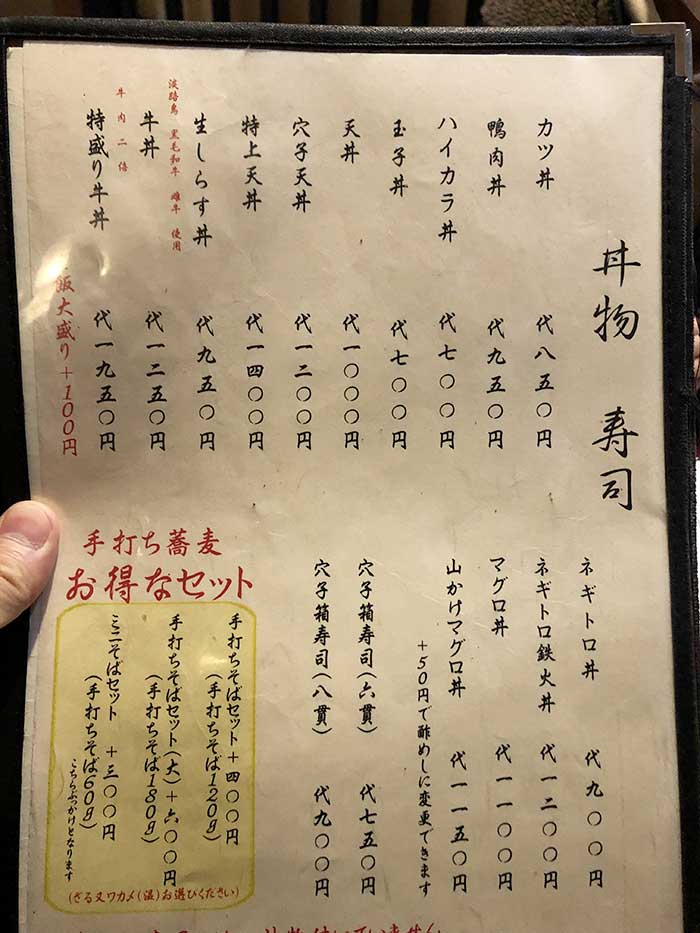 丼物 寿司
カツ丼 代八五〇円
鴨肉丼 代九五〇円
ハイカラ丼 代七〇〇円
玉子丼 代七〇〇円
天丼 代一〇〇〇円
穴子天丼 代一二〇〇円
特上天丼 代一四〇〇円
生しらす丼 代九五〇円
淡路島 黒毛和牛 雌牛 使用
牛丼 代一二五〇円
牛肉二倍
特盛り牛丼 代一九五〇円
飯大盛り+100円
ネギトロ丼 代九〇〇円
ネギトロ鉄火丼 代一二〇〇円
マグロ丼 代一一〇〇円
山かけマグロ丼 代一一五〇円
+50円で酢めしに変更できます
穴子箱寿司(六貫) 代七五〇円
穴子箱寿司(八貫) 代九〇〇円
手打ち蕎麦
お得なセット
手打ちそばセット+四〇〇円
(手打ちそば120g)
手打ちそばセット(大)+六〇〇円
(手打ちそば180g)
ミニそばセット +三〇〇円
(手打ちそば60g)
こちらぶっかけとなります
(ざる又ワカメ(温)お選びください)